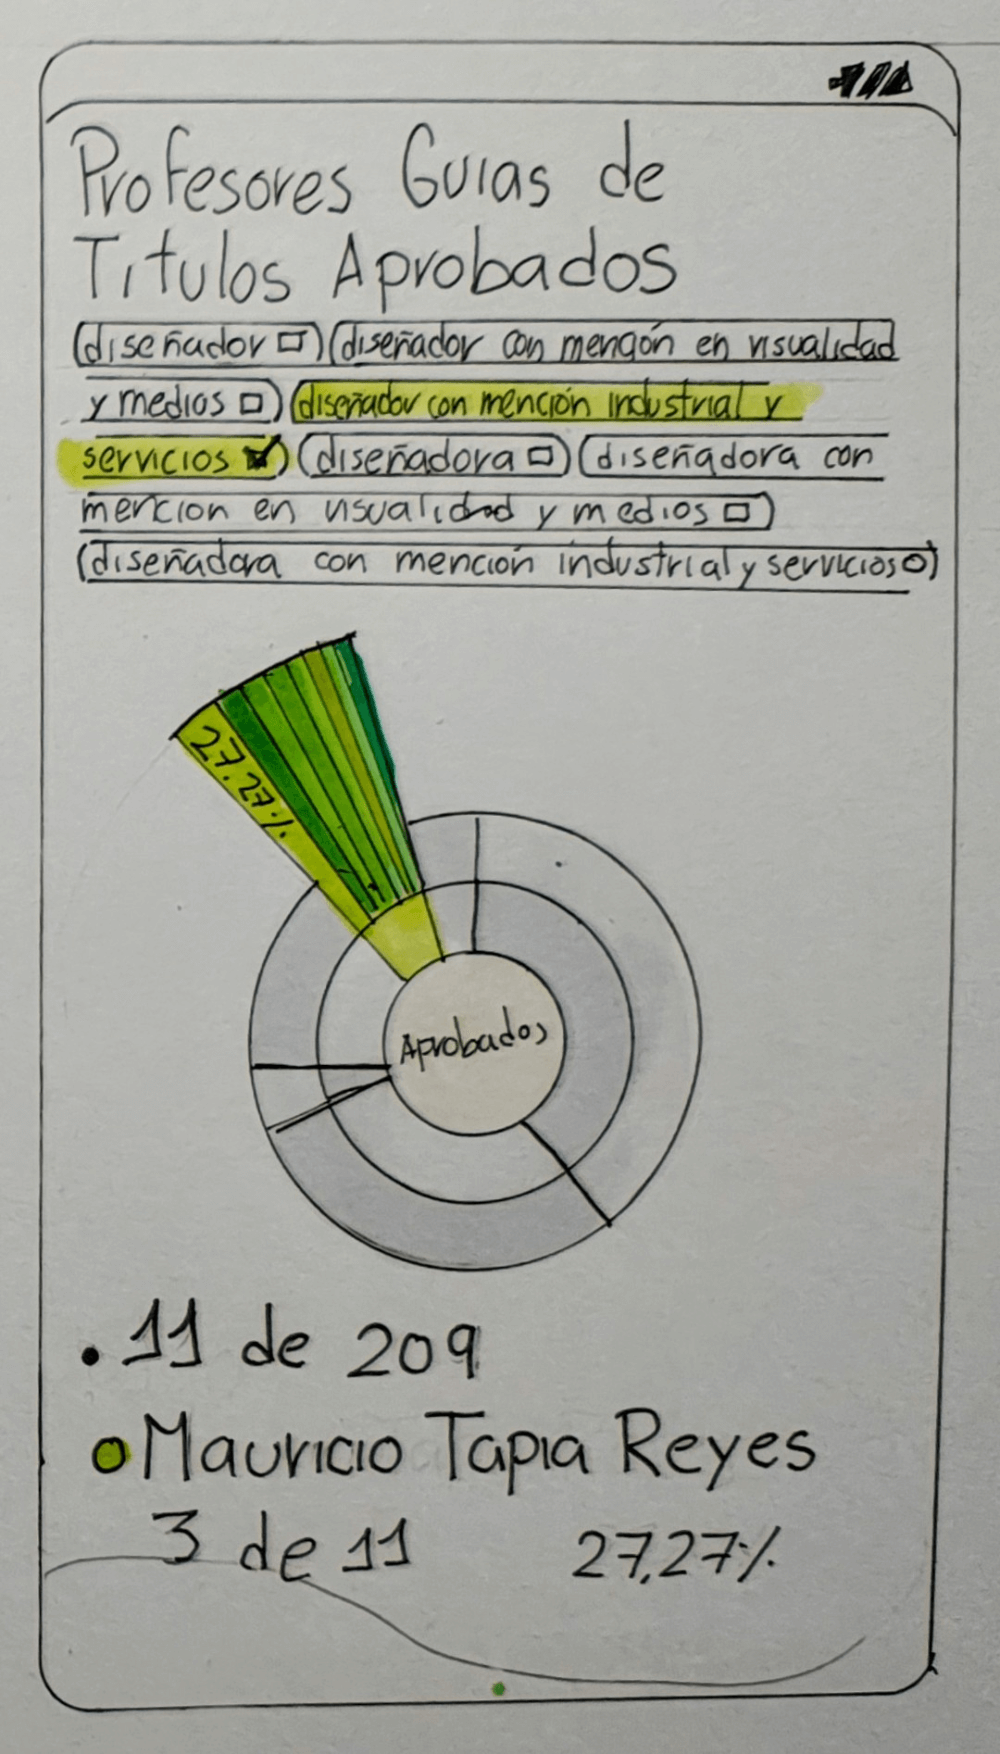 Profesores Guias de
Titulos Aprobados
(diseñador) (diseñador con mención en visualidad
y medios) (diseñador con mención industrial y
servicios) (diseñadora) (diseñadora con
mencion en visualidad y medios)
(diseñadora con mención industrial y servicios)
27.27%
Aprobados
• 11 de 209
Mauricio Tapia Reyes
3 de 11 27,27%